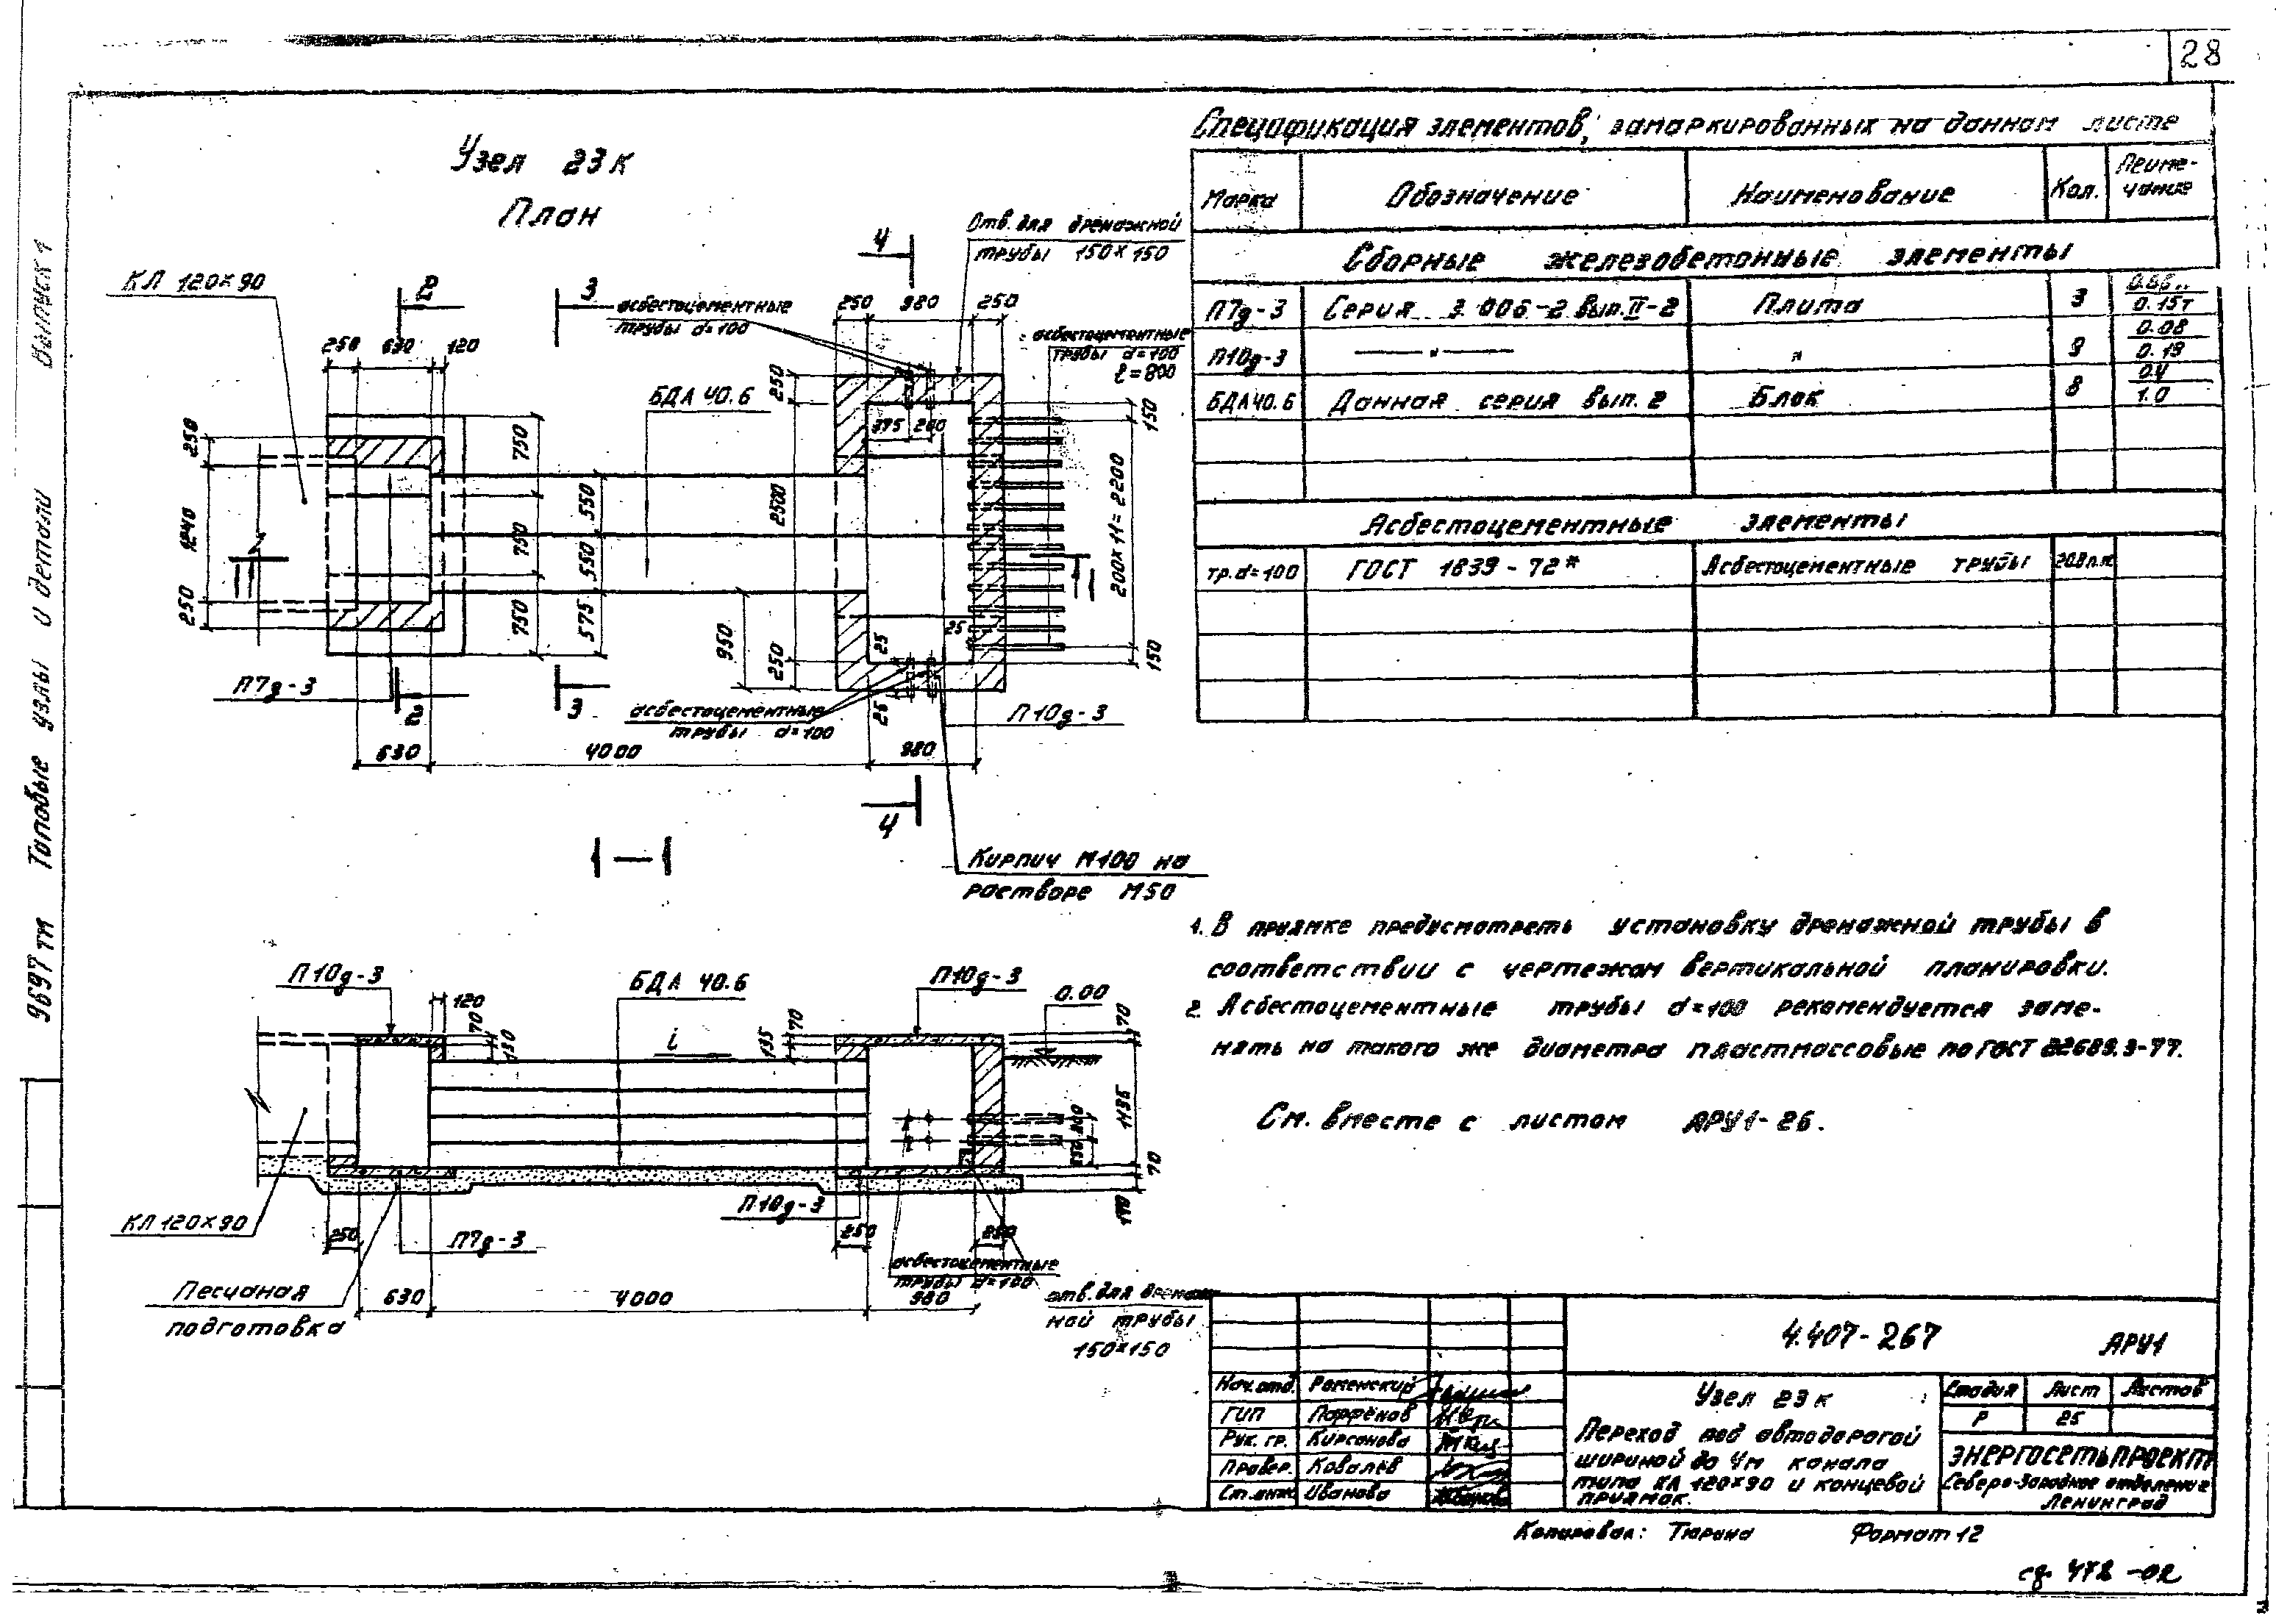 28
Узел 23к
План
КЛ 120×90
2
3
4
асбестоцементные
трубы d=100
Отв. для дренажной
трубы 150×150
250 980 250
асбестоцементные
трубы d=100
ℓ=800
250 630 120
БДА 40.6
250
375 260
150
250
750
550
2500
200×11=2200
1240
750
550
250
750
575
950
250
25
25
150
25
П7д-3
2
3
асбестоцементные
трубы d=100
П10д-3
630 4000 980
4
Кирпич М100 на
растворе М50
1—1
П10д-3
120
70
130
БДА 40.6
i
135
70
П10д-3
0.00
70
1135
70
КЛ 120×90
250
П7д-3
П10д-3
250
250
асбестоцементные
трубы d=100
Песчаная
подготовка
630 4000 980
отв. для дренаж
ной трубы
150×150
Спецификация элементов, замаркированных на данном листе
Марка Обозначение Наименование Кол. Приме-
чание
Сборные железобетонные элементы
П7д-3 Серия 3.006-2 вып. II-2 Плита 3 0.15т
П10д-3 —〃— 〃 9 0.08
0.19
БДА40.6 Данная серия вып. 2 Блок 8 0.4
1.0
Асбестоцементные элементы
тр. d=100 ГОСТ 1839-72* Асбестоцементные трубы 20.8 п.м
1. В приямке предусмотреть установку дренажной трубы в
соответствии с чертежом вертикальной планировки.
2. Асбестоцементные трубы d=100 рекомендуется заме-
нять на такого же диаметра пластмассовые по ГОСТ 22689.3-77.
См. вместе с листом АРУ1-26.
4.407-267 АРУ1
Нач. отд. Роменский
ГИП Парфёнов
Рук. гр. Кирсанова
Провер. Ковалёв
Ст. инж. Иванова
Узел 23к
Переход под автодорогой
шириной до 4м канала
типа КЛ 120×90 и концевой
приямок.
Стадия Лист Листов
Р 25
ЭНЕРГОСЕТЬПРОЕКТ
Северо-Западное отделение
Ленинград
Копировал: Тюрина Формат 12
9697тм Типовые узлы и детали Выпуск 1